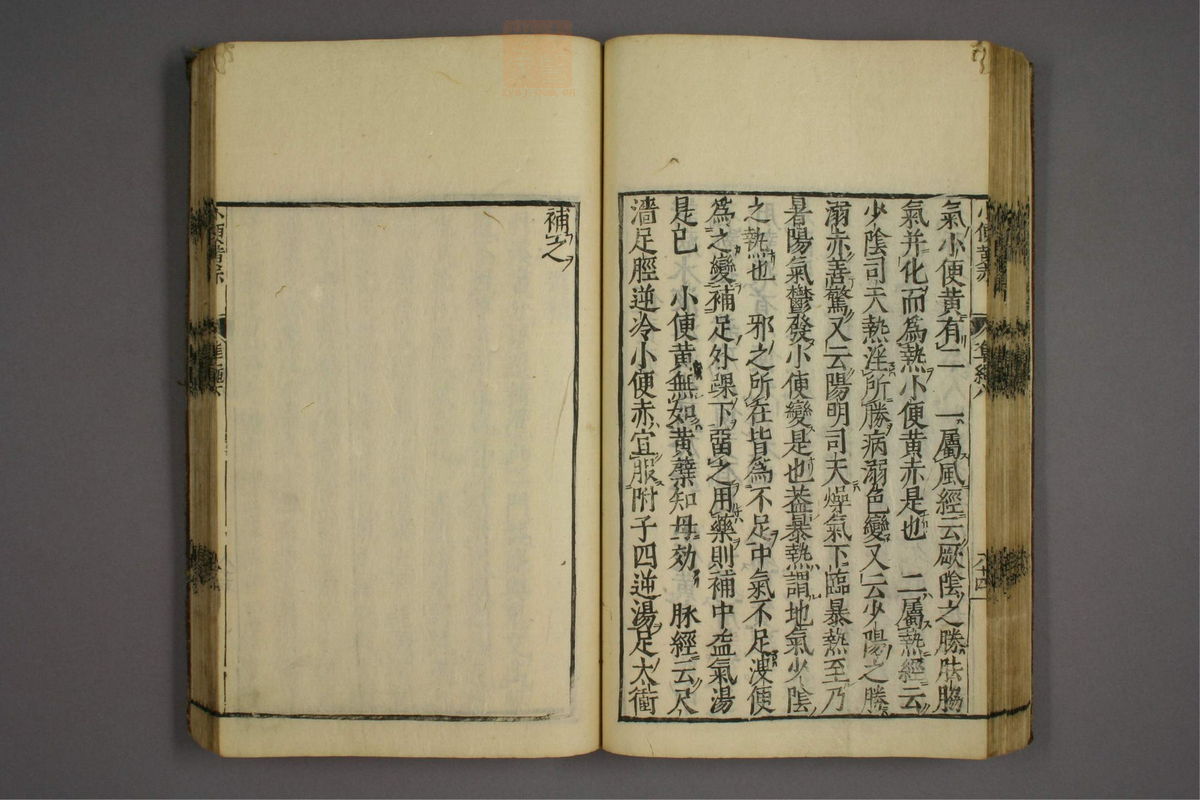 氣小便黃有二 一屬風經云厥陰之勝胠脇
氣并化而爲熱小便黃赤是也 二屬熱經云
少陰司天熱淫所勝病溺色變又云少陽之勝
溺赤善驚又云陽明司天燥氣下臨暴熱至乃
暑陽氣鬱發小便變是也葢暴熱謂地氣少陰
之熱也 邪之所在皆爲不足中氣不足溲便
爲之變補足外踝下留之用藥則補中益氣湯
是已 小便黃無如黃蘗知母効 脉經云尺
濇足脛逆冷小便赤宜服附子四逆湯足太衝
補之